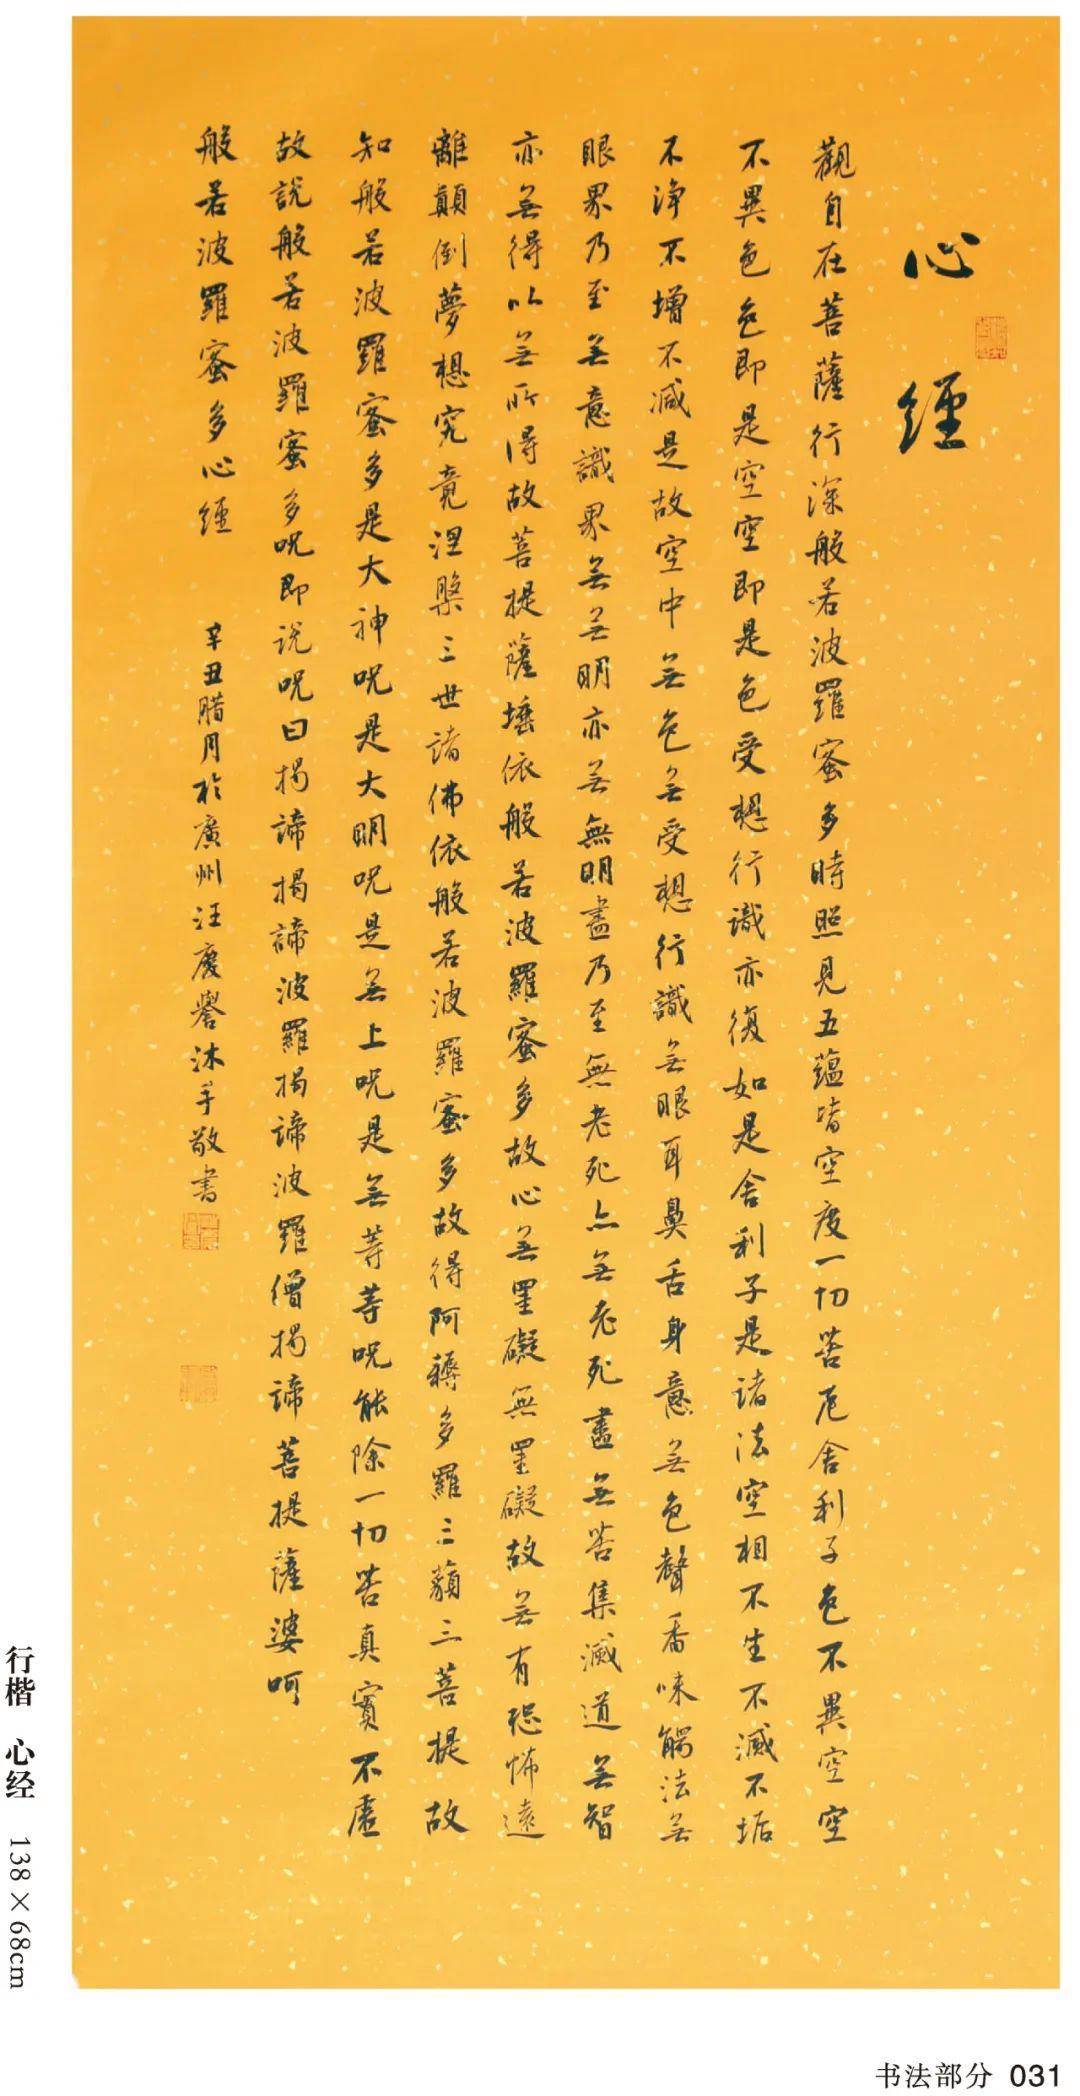 心經
觀自在菩薩行深般若波羅蜜多時照見五蘊皆空度一切苦厄舍利子色不異空空
不異色色即是空空即是色受想行識亦復如是舍利子是諸法空相不生不滅不垢
不淨不增不減是故空中無色無受想行識無眼耳鼻舌身意無色聲香味觸法無
眼界乃至無意識界無無明亦無無明盡乃至無老死亦無老死盡無苦集滅道無智
亦無得以無所得故菩提薩埵依般若波羅蜜多故心無罣礙無罣礙故無有恐怖遠
離顛倒夢想究竟涅槃三世諸佛依般若波羅蜜多故得阿耨多羅三藐三菩提故
知般若波羅蜜多是大神呪是大明呪是無上呪是無等等呪能除一切苦真實不虛
故說般若波羅蜜多呪即說呪曰揭諦揭諦波羅揭諦波羅僧揭諦菩提薩婆呵
般若波羅蜜多心經
辛丑腊月於廣州汪慶譽沐手敬書
行楷 心经 138×68cm
书法部分 031